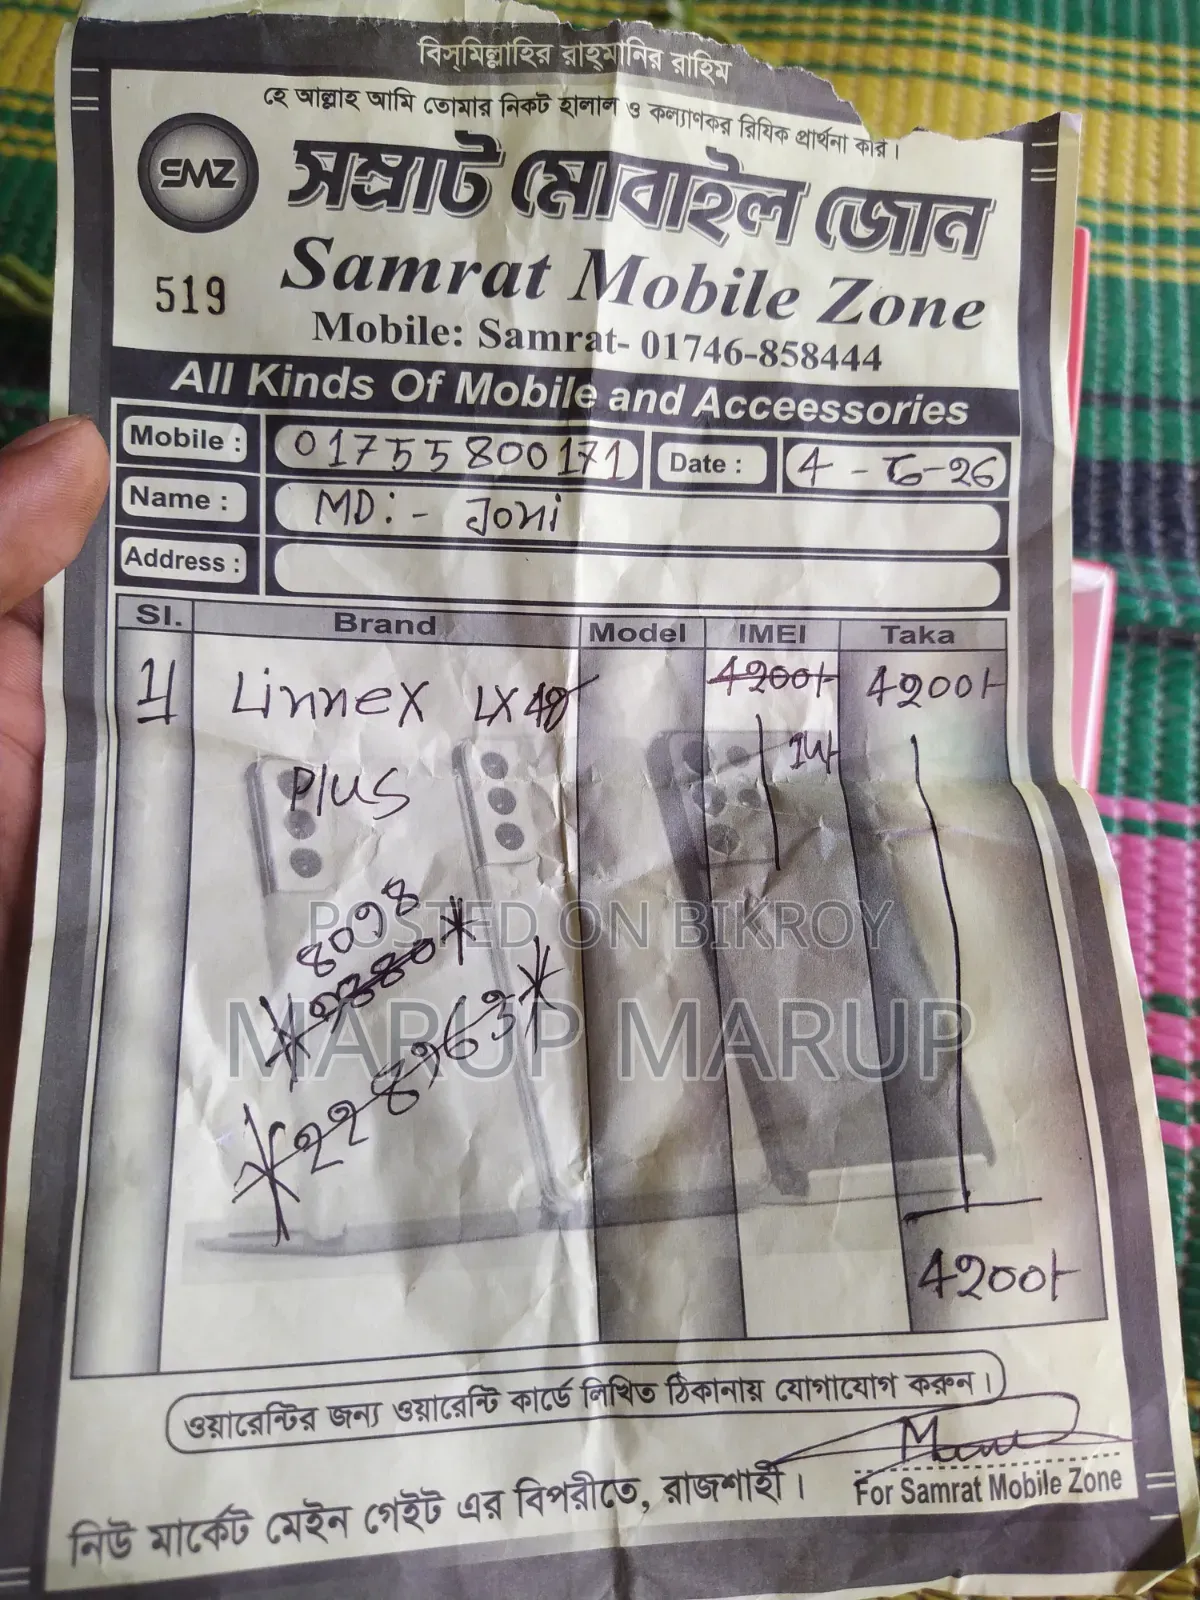 বিস্‌মিল্লাহির রাহ্‌মানির রাহিম
হে আল্লাহ আমি তোমার নিকট হালাল ও কল্যাণকর রিযিক প্রার্থনা করি।
SMZ
সম্রাট মোবাইল জোন
519
Samrat Mobile Zone
Mobile: Samrat- 01746-858444
All Kinds Of Mobile and Acceessories
Mobile : 01755800171 Date : 4-6-26
Name : MD:- Joni
Address :
Sl. Brand Model IMEI Taka
1 Linnex LX48 4200/- 4200/-
Plus
8098
POSTED ON BIKROY
MARUP MARUP
4200/-
ওয়ারেন্টির জন্য ওয়ারেন্টি কার্ডে লিখিত ঠিকানায় যোগাযোগ করুন।
For Samrat Mobile Zone
নিউ মার্কেট মেইন গেইট এর বিপরীতে, রাজশাহী।